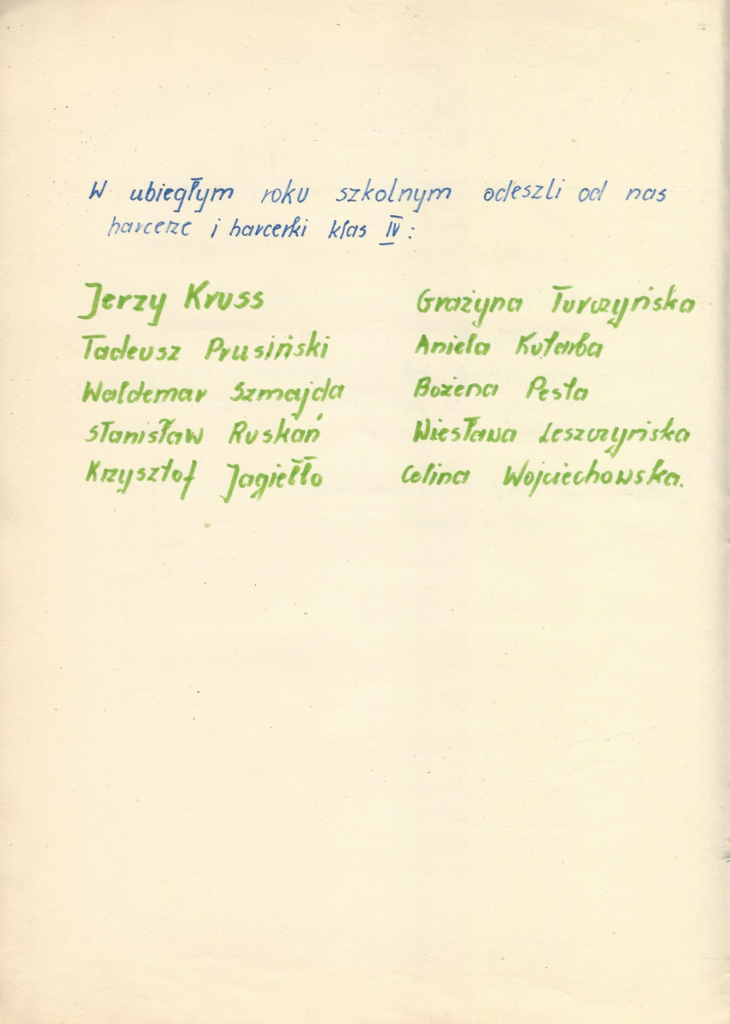 W ubiegłym roku szkolnym odeszli od nas
harcerze i harcerki klas IV:
Jerzy Kruss
Tadeusz Prusiński
Waldemar Szmajda
Stanisław Ruskań
Krzysztof Jagiełło
Grażyna Turczyńska
Aniela Kutarba
Bożena Pesta
Wiesława Leszczyńska
Celina Wojciechowska.